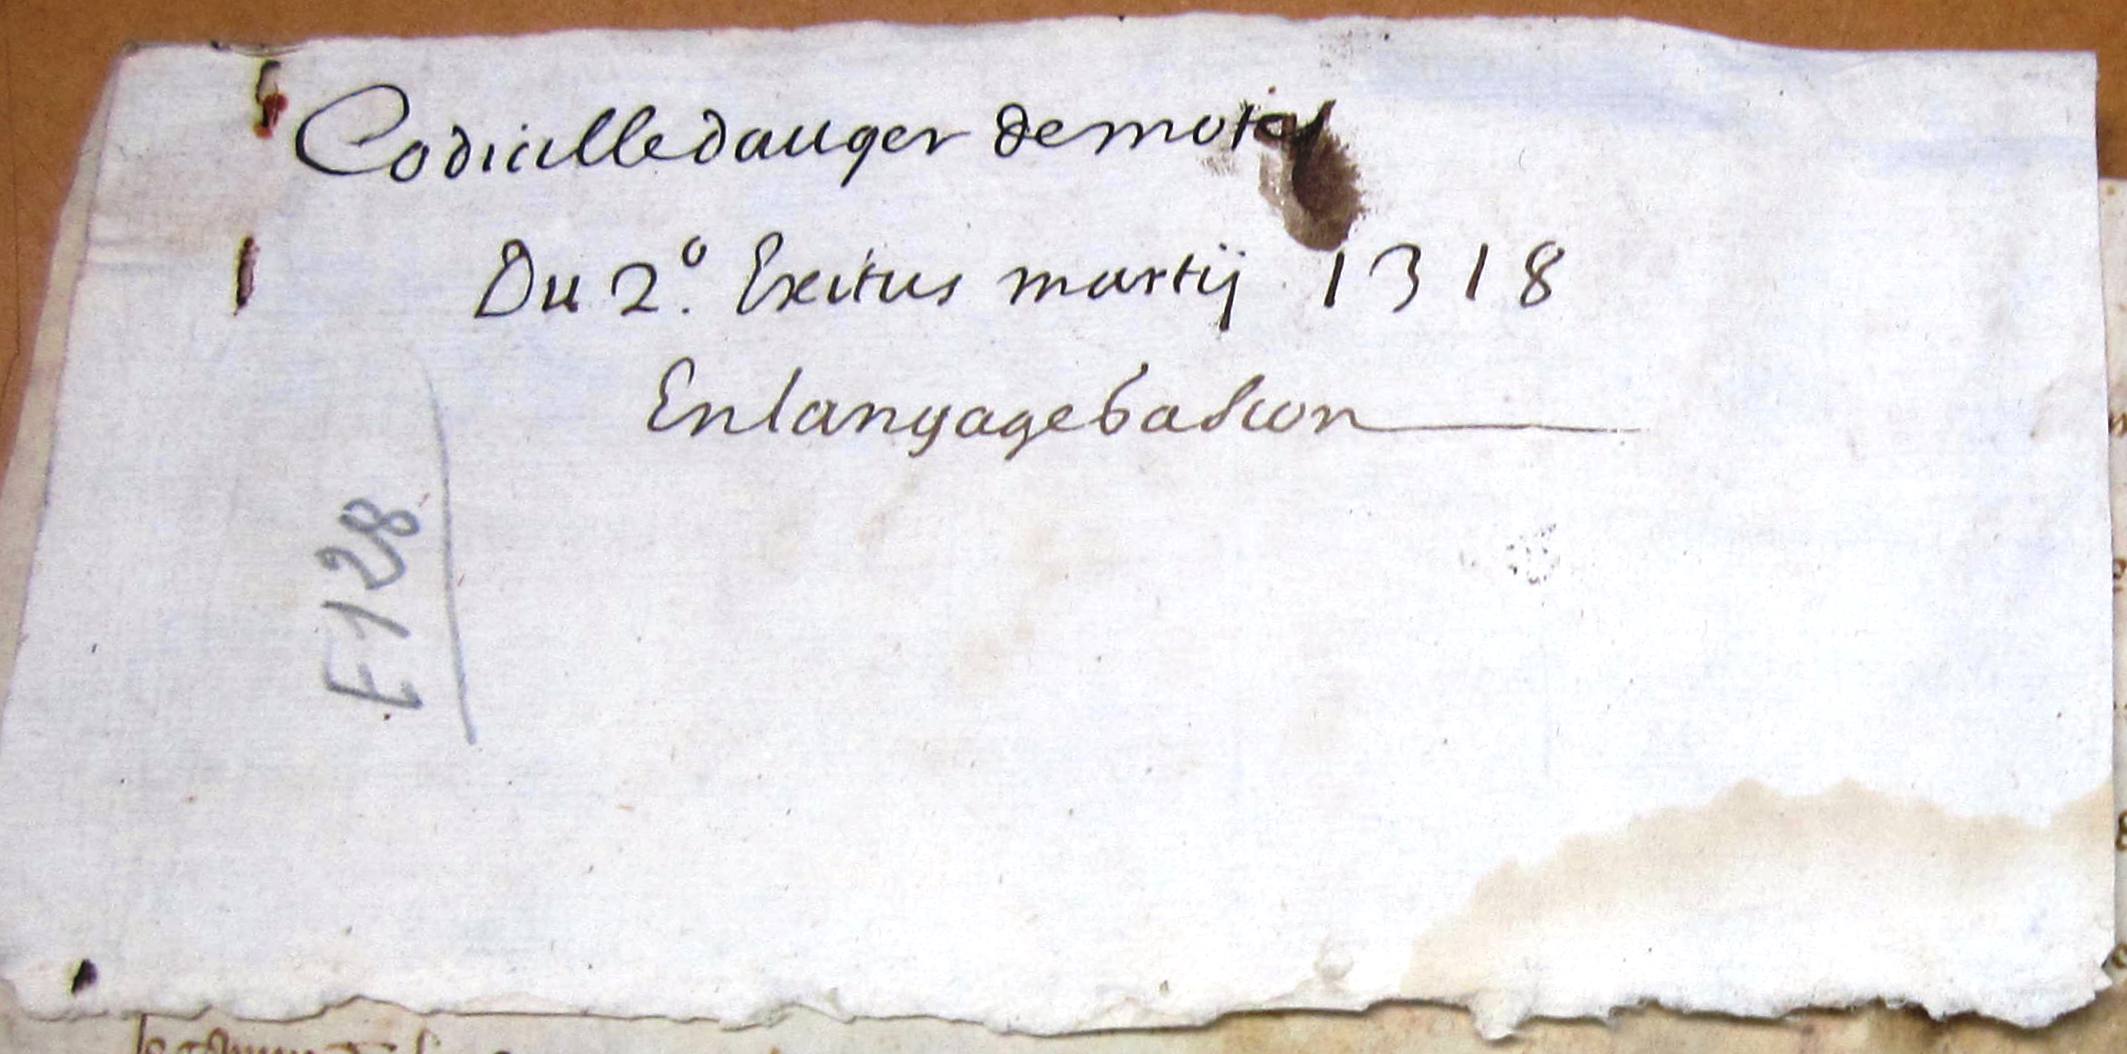 Codicille dauger de
Du 2.º Exitus martij 1318
En langage bascon
E 128